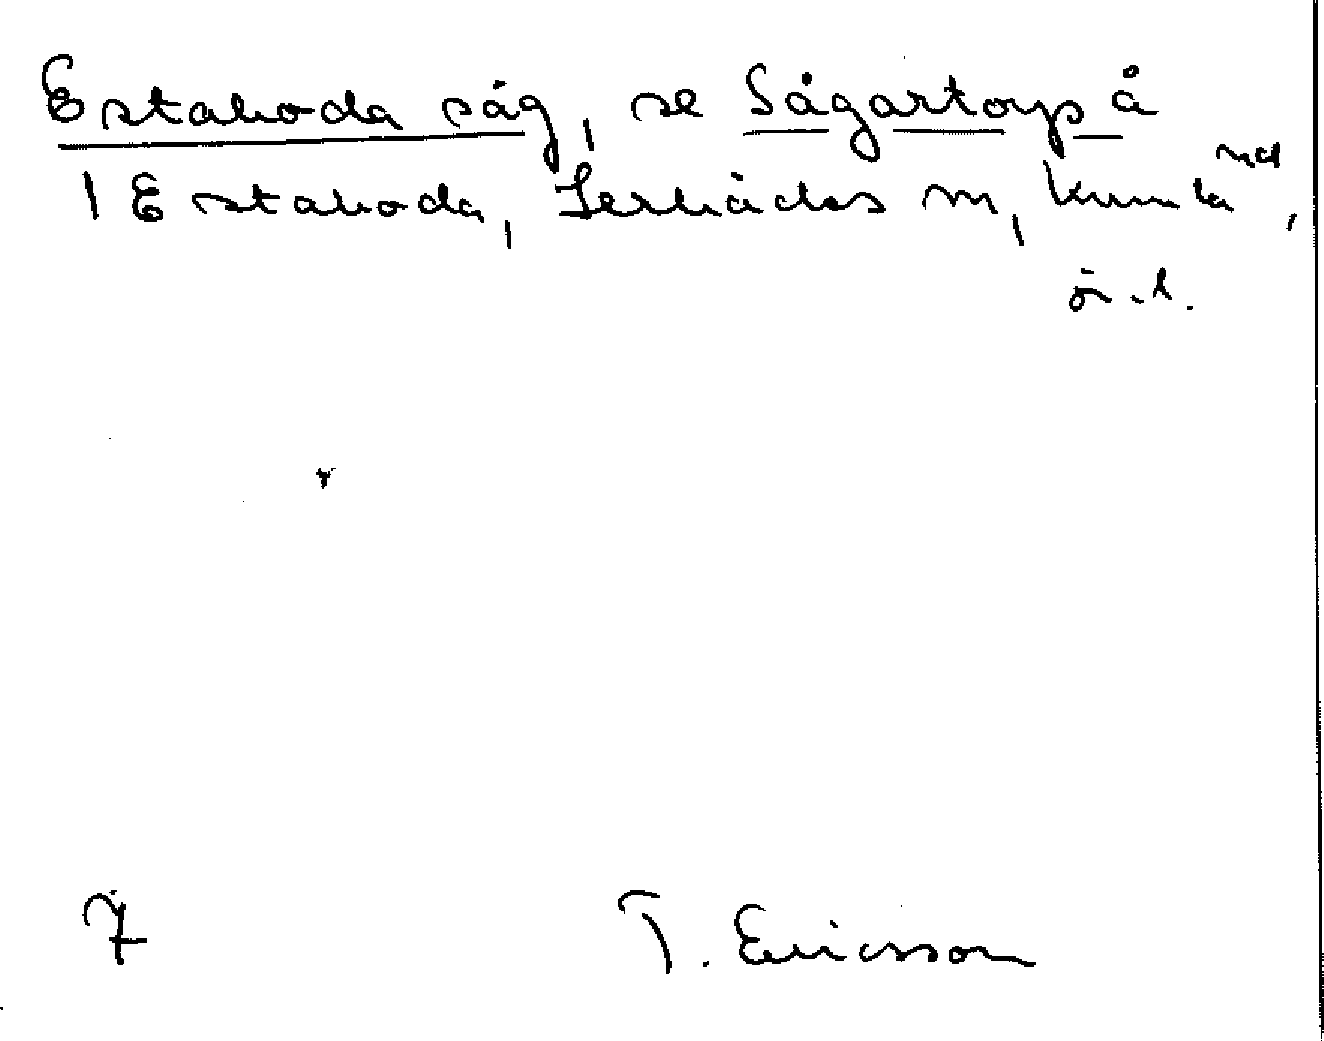 Estaboda såg, se Sågartorp å
1 Estaboda, Lerbäcks sn, Kumla hd,
ö.l.
7 T. Ericsson